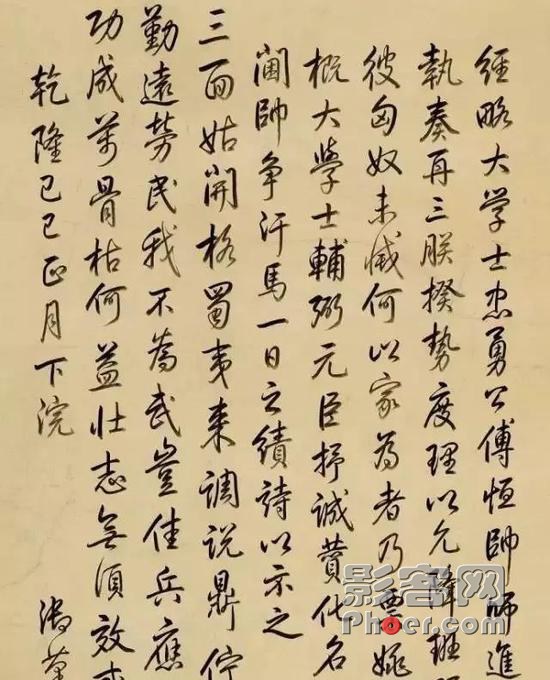 經略大学士忠勇公傅恒帥師進
執奏再三朕揆勢度理以允降班
彼匈奴未滅何以家為者乃票姚
概大學士輔弼元臣抒誠贊化名
閫帥爭汗馬一日之績詩以示之
三面姑開格蜀夷來調說鼎佇
勤遠勞民我不為武豈佳兵應
功成萬骨枯何益壯志無須效
乾隆己巳正月下浣 御筆
影客网
Phoer.com